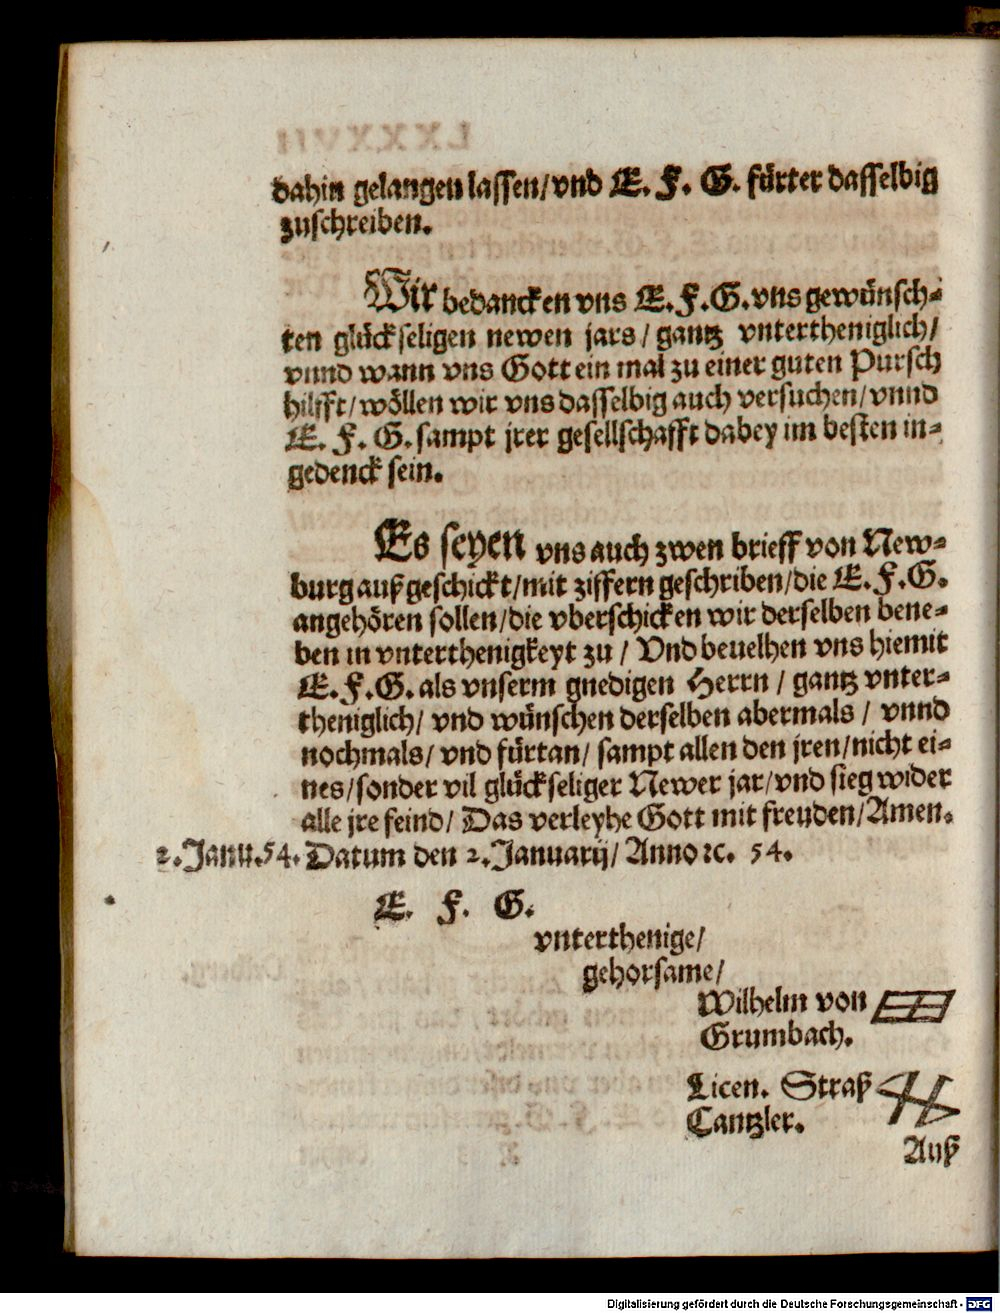 dahin gelangen lassen/vnd E. F. G. fürter dasselbig
zuschreiben.
Wir bedancken vns E.F.G. vns gewünsch-
ten glückseligen newen jars/ gantz vntertheniglich/
vnnd wann vns Gott ein mal zu einer guten Pursch
hilfft/wöllen wir vns dasselbig auch versuchen/vnnd
E. F. G. sampt jrer gesellschafft dabey im besten in-
gedenck sein.
Es seyen vns auch zwen brieff von New-
burg auß geschickt/mit ziffern geschriben/die E.F.G.
angehören sollen/die vberschicken wir derselben bene-
ben in vnterthenigkeyt zu / Vnd beuelhen vns hiemit
E.F.G. als vnserm gnedigen Herrn / gantz vnter-
theniglich/ vnd wünschen derselben abermals / vnnd
nochmals/ vnd fürtan/ sampt allen den jren/nicht ei-
nes/sonder vil glückseliger Newer jar/vnd sieg wider
alle jre feind/ Das verleyhe Gott mit freuden/Amen.
2.Janu.54. Datum den 2.Januarij/ Anno ꝛc. 54.
E. F. G.
vnterthenige/
gehorsame/
Wilhelm von
Grumbach.
Licen. Straß
Cantzler.
Auß
Digitalisierung gefördert durch die Deutsche Forschungsgemeinschaft - DFG